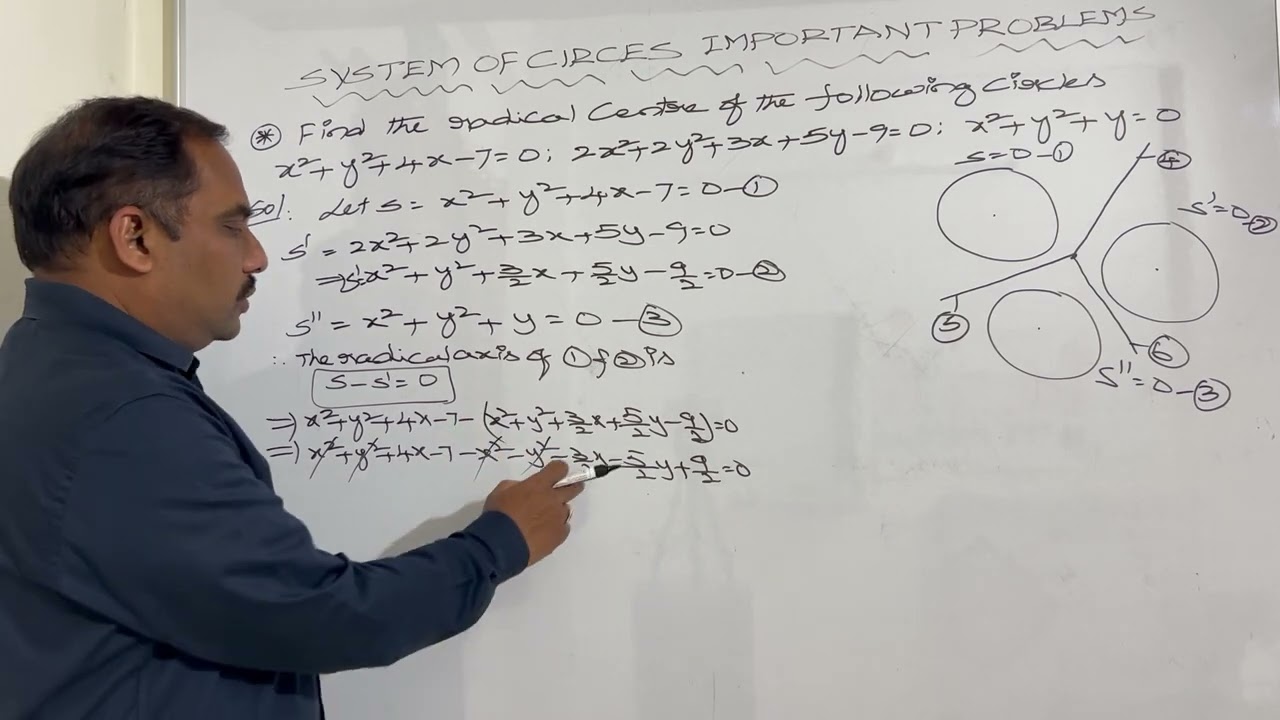 SYSTEM OF CIRCES IMPORTANT PROBLEMS
* Find the radical Centre of the following Circles
x²+y²+4x-7=0; 2x²+2y²+3x+5y-9=0; x²+y²+y=0
Sol: Let S = x²+y²+4x-7=0-①
S' = 2x²+2y²+3x+5y-9=0
⇒S'=x²+y²+3/2x+5/2y-9/2=0-②
S'' = x²+y²+y=0-③
∴ The radical axis of ① & ② is
S-S'=0
⇒) x²+y²+4x-7-(x²+y²+3/2x+5/2y-9/2)=0
⇒) x²+y²+4x-7-x²-y²-3/2x-5/2y+9/2=0
S=0-①
④
S'=0-②
⑤
⑥
S''=0-③